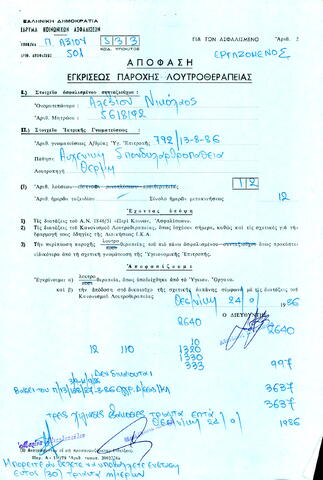 ΕΛΛΗΝΙΚΗ ΔΗΜΟΚΡΑΤΙΑ
ΙΔΡΥΜΑ ΚΟΙΝΩΝΙΚΩΝ ΑΣΦΑΛΙΣΕΩΝ
Π. ΑΞΙΟΥ 533
ΚΩΔ. ΥΠΟΚ/ΤΟΣ
ΓΙΑ ΤΟΝ ΑΣΦΑΛΙΣΜΕΝΟ
Άριθ. 2
501
ΕΡΓΑΖΟΜΕΝΟΣ
ΑΠΟΦΑΣΗ
ΕΓΚΡΙΣΕΩΣ ΠΑΡΟΧΗΣ ΛΟΥΤΡΟΘΕΡΑΠΕΙΑΣ
Ι.) Στοιχεία ἀσφαλισμένου συνταξιούχου:
Ὀνοματεπώνυμο: Νικόλαος
Ἀριθ. Μητρώου: 5618192
ΙΙ.) Στοιχεῖα Ἰατρικῆς Γνωματεύσεως:
Ἀριθ. γνωματεύσεως Α)θμιας Ὑγ. Ἐπιτροπῆς 792/13-8-86
Πάθησις Αυχενική Σπονδυλαρθροπάθεια
Λουτροπηγή Θέρμη
1) Ἀριθ. λούσεων 12
2) Ἀριθ. ἡμερῶν ταξειδίου Σύνολο ἡμερῶν μετακινήσεως 12
Ἔχοντας ὑπόψη
1) Τίς διατάξεις τοῦ Α.Ν. 1846/51 «Περί Κοινων. Ἀσφαλίσεων».
2) Τίς διατάξεις τοῦ Κανονισμοῦ Λουτροθεραπείας, ὅπως ἰσχύουν σήμερα, καθώς καί τίς σχετικές γιά τήν
ἐφαρμογή τους ὁδηγίες τῆς Διοικήσεως Ι.Κ.Α.
3) Τήν περίπτωση παροχῆς λουτροθεραπείας τοῦ πιό πάνω ἀσφαλισμένου συνταξιούχου ὅπως προκύπτει
εἰδικώτερα ἀπό τή σχετική γνωμάτευση τῆς Ὑγειονομικῆς Ἐπιτροπῆς.
Ἀποφασίζουμε
Ἐγκρίνουμε: α) λουτροθεραπεία, ὅπως ὑποδείχθηκε ἀπό τά Ὑγειον. Ὄργανα.
καί β) τήν ἀπόδοση στό δικαιοῦχο τῆς σχετικῆς δαπάνης σύμφωνα μέ τίς διατάξεις τοῦ
Κανονισμοῦ Λουτροθεραπείας.
1986
Ο ΔΙΕΥΘΥΝΤΗΣ
2640
2640
10
12 110 1320
1330
333
997
ΔΕΝ ΔΙΚΑΙΟΥΤΑΙ
3637
3637
τρεις χιλιάδες εξακόσιες τριάντα επτά
1986
Μπορείτε αν θέλετε να υποβάλετε ένσταση
εντός (30) τριάντα ημερών